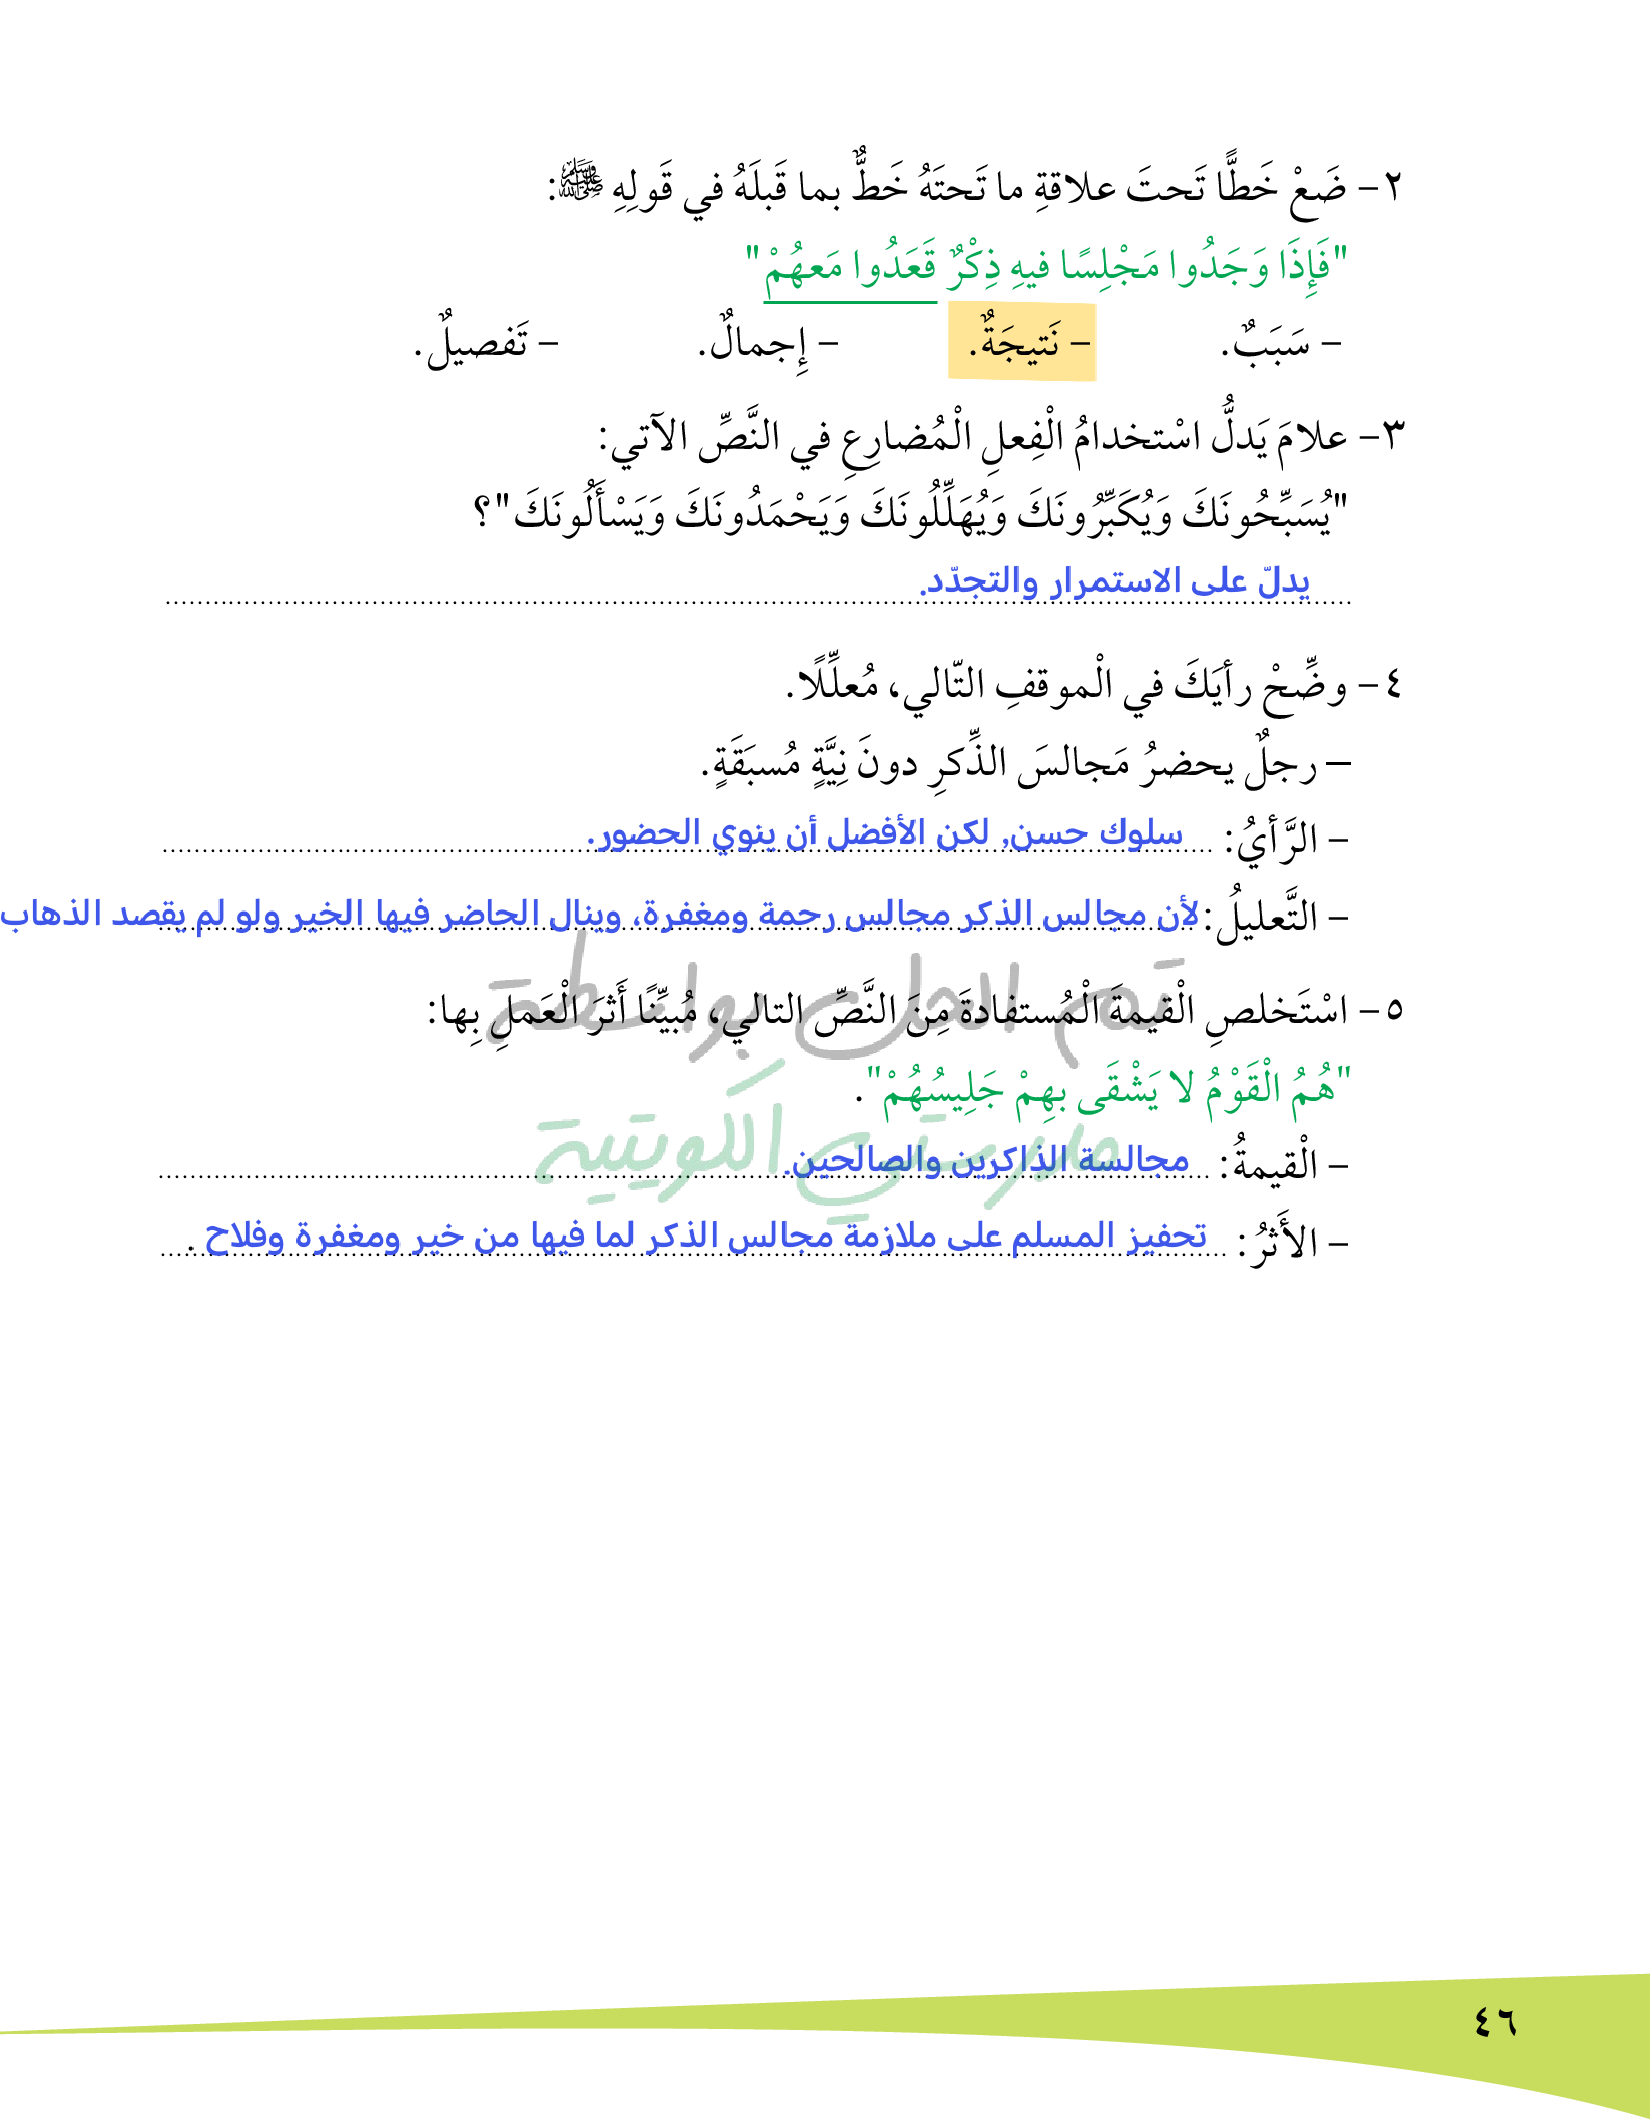 ٢- ضَعْ خَطًّا تَحتَ علاقةِ ما تَحتَهُ خَطٌّ بما قَبلَهُ في قَولِهِ ﷺ:
"فَإِذَا وَجَدُوا مَجْلِسًا فيهِ ذِكْرٌ قَعَدُوا مَعهُمْ"
- سَبَبٌ. - نَتيجَةٌ. - إِجمالٌ. - تَفصيلٌ.
٣- علامَ يَدلُّ اسْتخدامُ الْفِعلِ الْمُضارِعِ في النَّصِّ الآتي:
"يُسَبِّحُونَكَ وَيُكَبِّرُونَكَ وَيُهَلِّلُونَكَ وَيَحْمَدُونَكَ وَيَسْأَلُونَكَ"؟
يدلّ على الاستمرار والتجدّد.
٤- وضِّحْ رأيَكَ في الْموقفِ التّالي، مُعلِّلًا.
– رجلٌ يحضرُ مَجالسَ الذِّكرِ دونَ نِيَّةٍ مُسبَقَةٍ.
- الرَّأيُ: سلوك حسن, لكن الأفضل أن ينوي الحضور.
- التَّعليلُ: لأن مجالس الذكر مجالس رحمة ومغفرة، وينال الحاضر فيها الخير ولو لم يقصد الذهاب
تم الحل بواسطة
٥- اسْتَخلصِ الْقيمةَ الْمُستفادةَ مِنَ النَّصِّ التالي، مُبيِّنًا أَثرَ الْعَملِ بِها:
"هُمُ الْقَوْمُ لا يَشْقَى بهِمْ جَلِيسُهُمْ".
مدرستي الكويتية
- الْقيمةُ: مجالسة الذاكرين والصالحين.
- الأَثرُ: تحفيز المسلم على ملازمة مجالس الذكر لما فيها من خير ومغفرة وفلاح .
٤٦